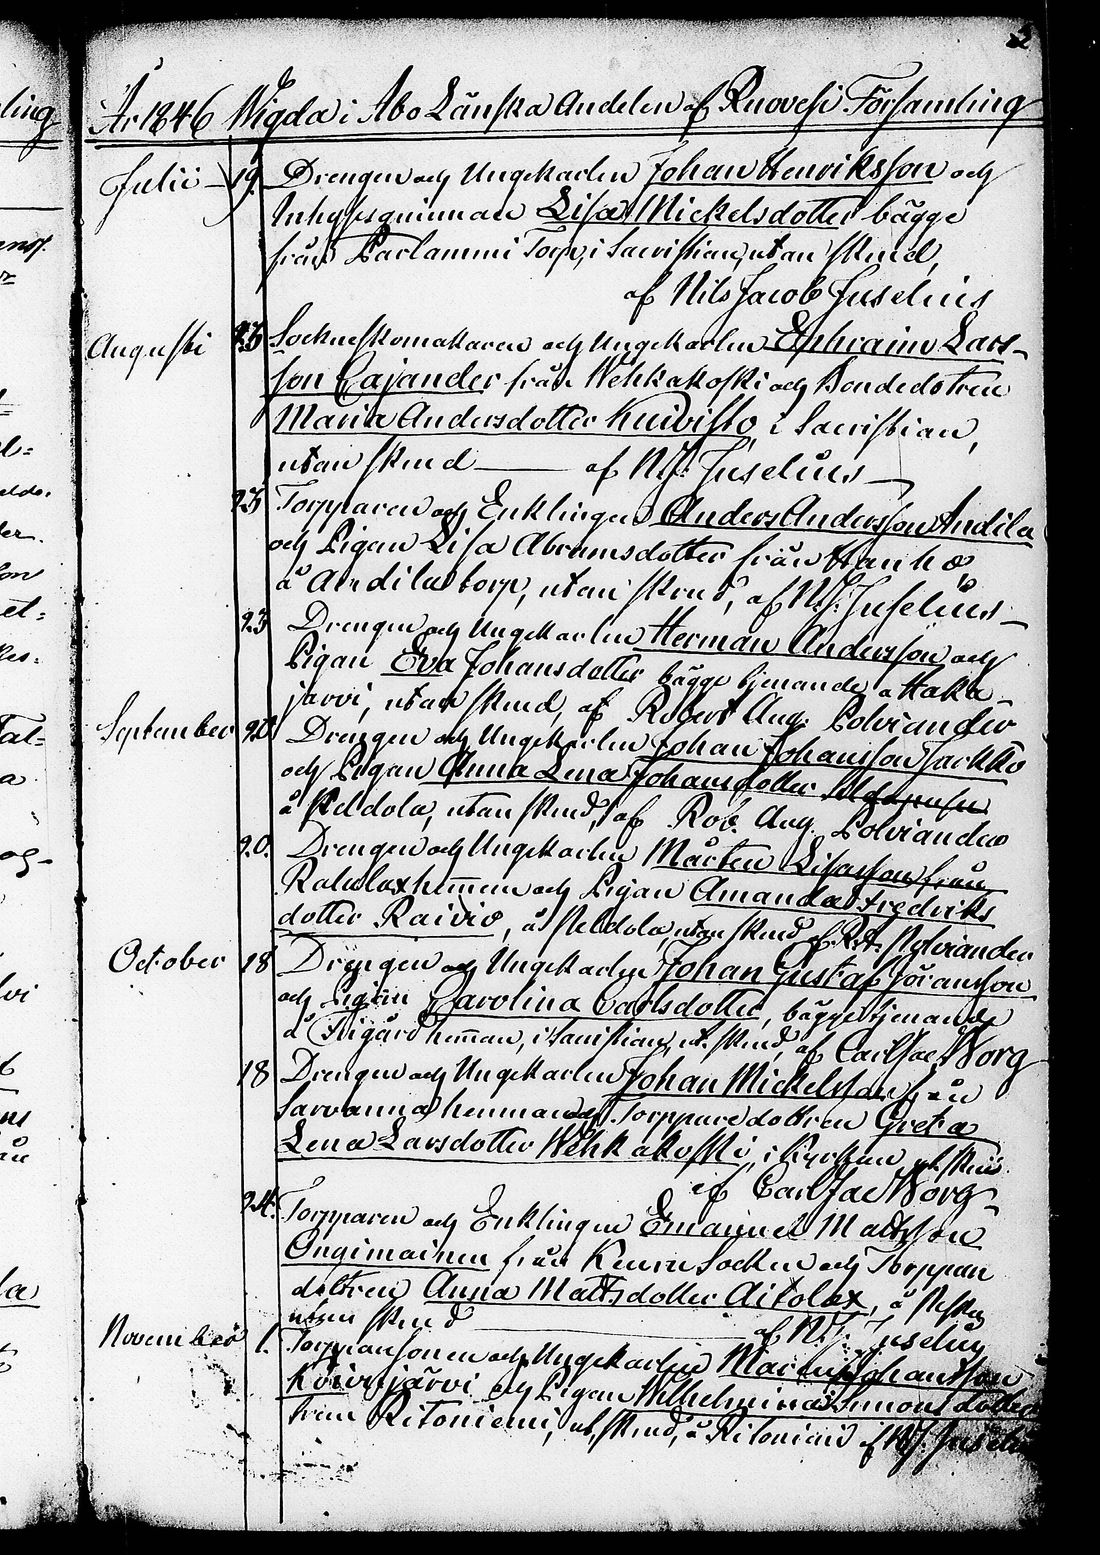 2
År 1846 Wigda i Åbo Länska Andelen af Ruovesi Församling
Julii 19. Drengen och Ungekarlen Johan Henriksson och
Inhysesqvinnan Lisa Mickelsdotter bägge
från Parlammi Torp, i Sacristian, utan skrud,
af Nils Jacob Juselius
Augusti 23 Sockneskomakaren och Ungekarlen Ephraim Lars-
son Cajander från Wehkakoski och Bondedotren
Maria Andersdotter Kuivisto, i Sacristian,
utan skrud af N. J. Juselius
23 Torpparen och Enklingen Anders Andersson Andila
och Pigan Lisa Abramsdotter från Hanho
å Andila torp, utan skrud, af N. J. Juselius
23 Drengen och Ungekarlen Herman Andersson och
Pigan Eva Johansdotter bägge tjenande å Haka-
järvi, utan skrud, af Robert Aug. Polviander
September 20. Drengen och Ungekarlen Johan Johansson Jarkko
och Pigan Anna Lena Johansdotter
å Peldola, utan skrud, af Rob. Aug. Polviander
20. Drengen och Ungekarlen Mårten Lisasson från
hemman och Pigan Amanda Fredriks
dotter Raivio, å Peldola, utan skrud af Rob. Polviander
October 18 Drengen och Ungekarlen Johan Gustaf Göransson
och Pigan Carolina Carlsdotter, bägge tjenande
å hemman, i Sacristian, ut. skrud, af Carl Jac Worg
18 Drengen och Ungekarlen Johan Mickelsson från
Sarvanna hemman och Torpparedotren Greta
Lena Larsdotter Wehkakoski, i Kyrkan ut. skrud
af Carl Jac Worg
24. Torpparen och Enklingen Emanuel Mattsson
Ongimainen från Keuru Socken och Torppan
dotren Anna Mattsdotter Aitolax, å
utan skrud af N. J. Juselius
November 1. Torppansonen och Ungekarlen Johansson
Koverojärvi och Pigan Wilhelmina Simonsdotter
från Ritoniemi, ut. skrud, å Ritoniemi af N. J. Juselius